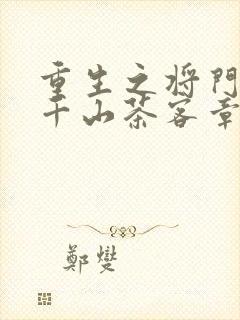 重生之将門
千山茶客章
鄭燮